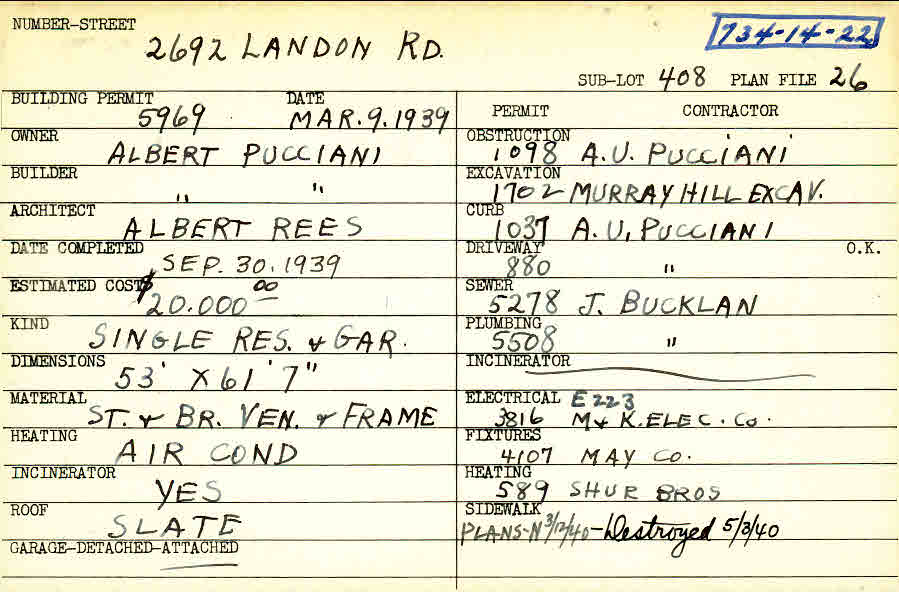 NUMBER-STREET
2692 LANDON RD.
734-14-22
SUB-LOT 408 PLAN FILE 26
BUILDING PERMIT DATE
5969 MAR. 9. 1939
OWNER
ALBERT PUCCIANI
BUILDER
" "
ARCHITECT
ALBERT REES
DATE COMPLETED
SEP. 30. 1939
ESTIMATED COST
$20.000 00
KIND
SINGLE RES. & GAR.
DIMENSIONS
53' X 61' 7"
MATERIAL
ST. & BR. VEN. & FRAME
HEATING
AIR COND
INCINERATOR
YES
ROOF
SLATE
GARAGE-DETACHED-ATTACHED
PERMIT CONTRACTOR
OBSTRUCTION
1098 A.U. PUCCIANI
EXCAVATION
1702 MURRAY HILL EXCAV.
CURB
1037 A.U. PUCCIANI
DRIVEWAY O.K.
880 "
SEWER
5278 J. BUCKLAN
PLUMBING
5508 "
INCINERATOR
ELECTRICAL E223
3816 M & K. ELEC. Co.
FIXTURES
4107 MAY Co.
HEATING
589 SHUR BROS
SIDEWALK
PLANS-N 3/12/40-Destroyed 5/3/40